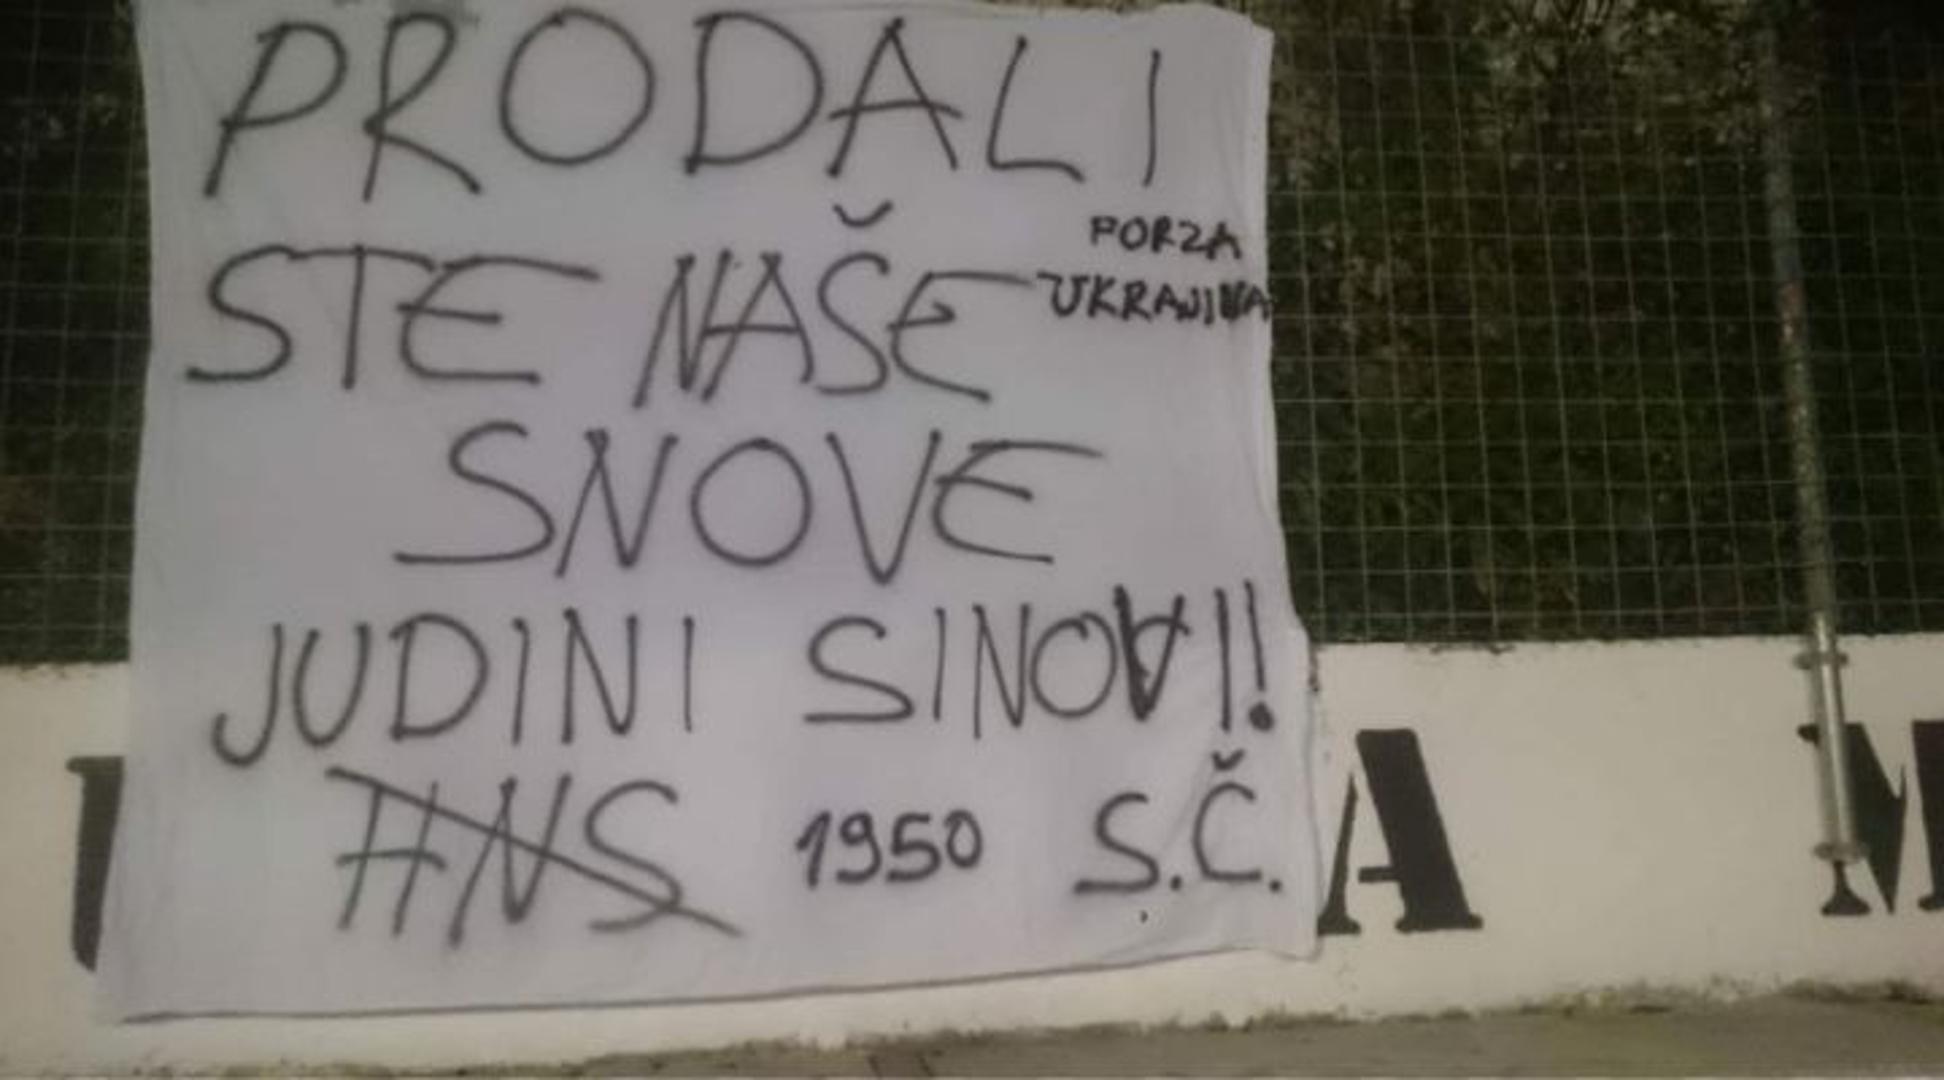 PRODALI
STE NAŠE
FORZA
UKRAJINA
SNOVE
JUDINI SINOVI!
HNS 1950 S.Č.
A M